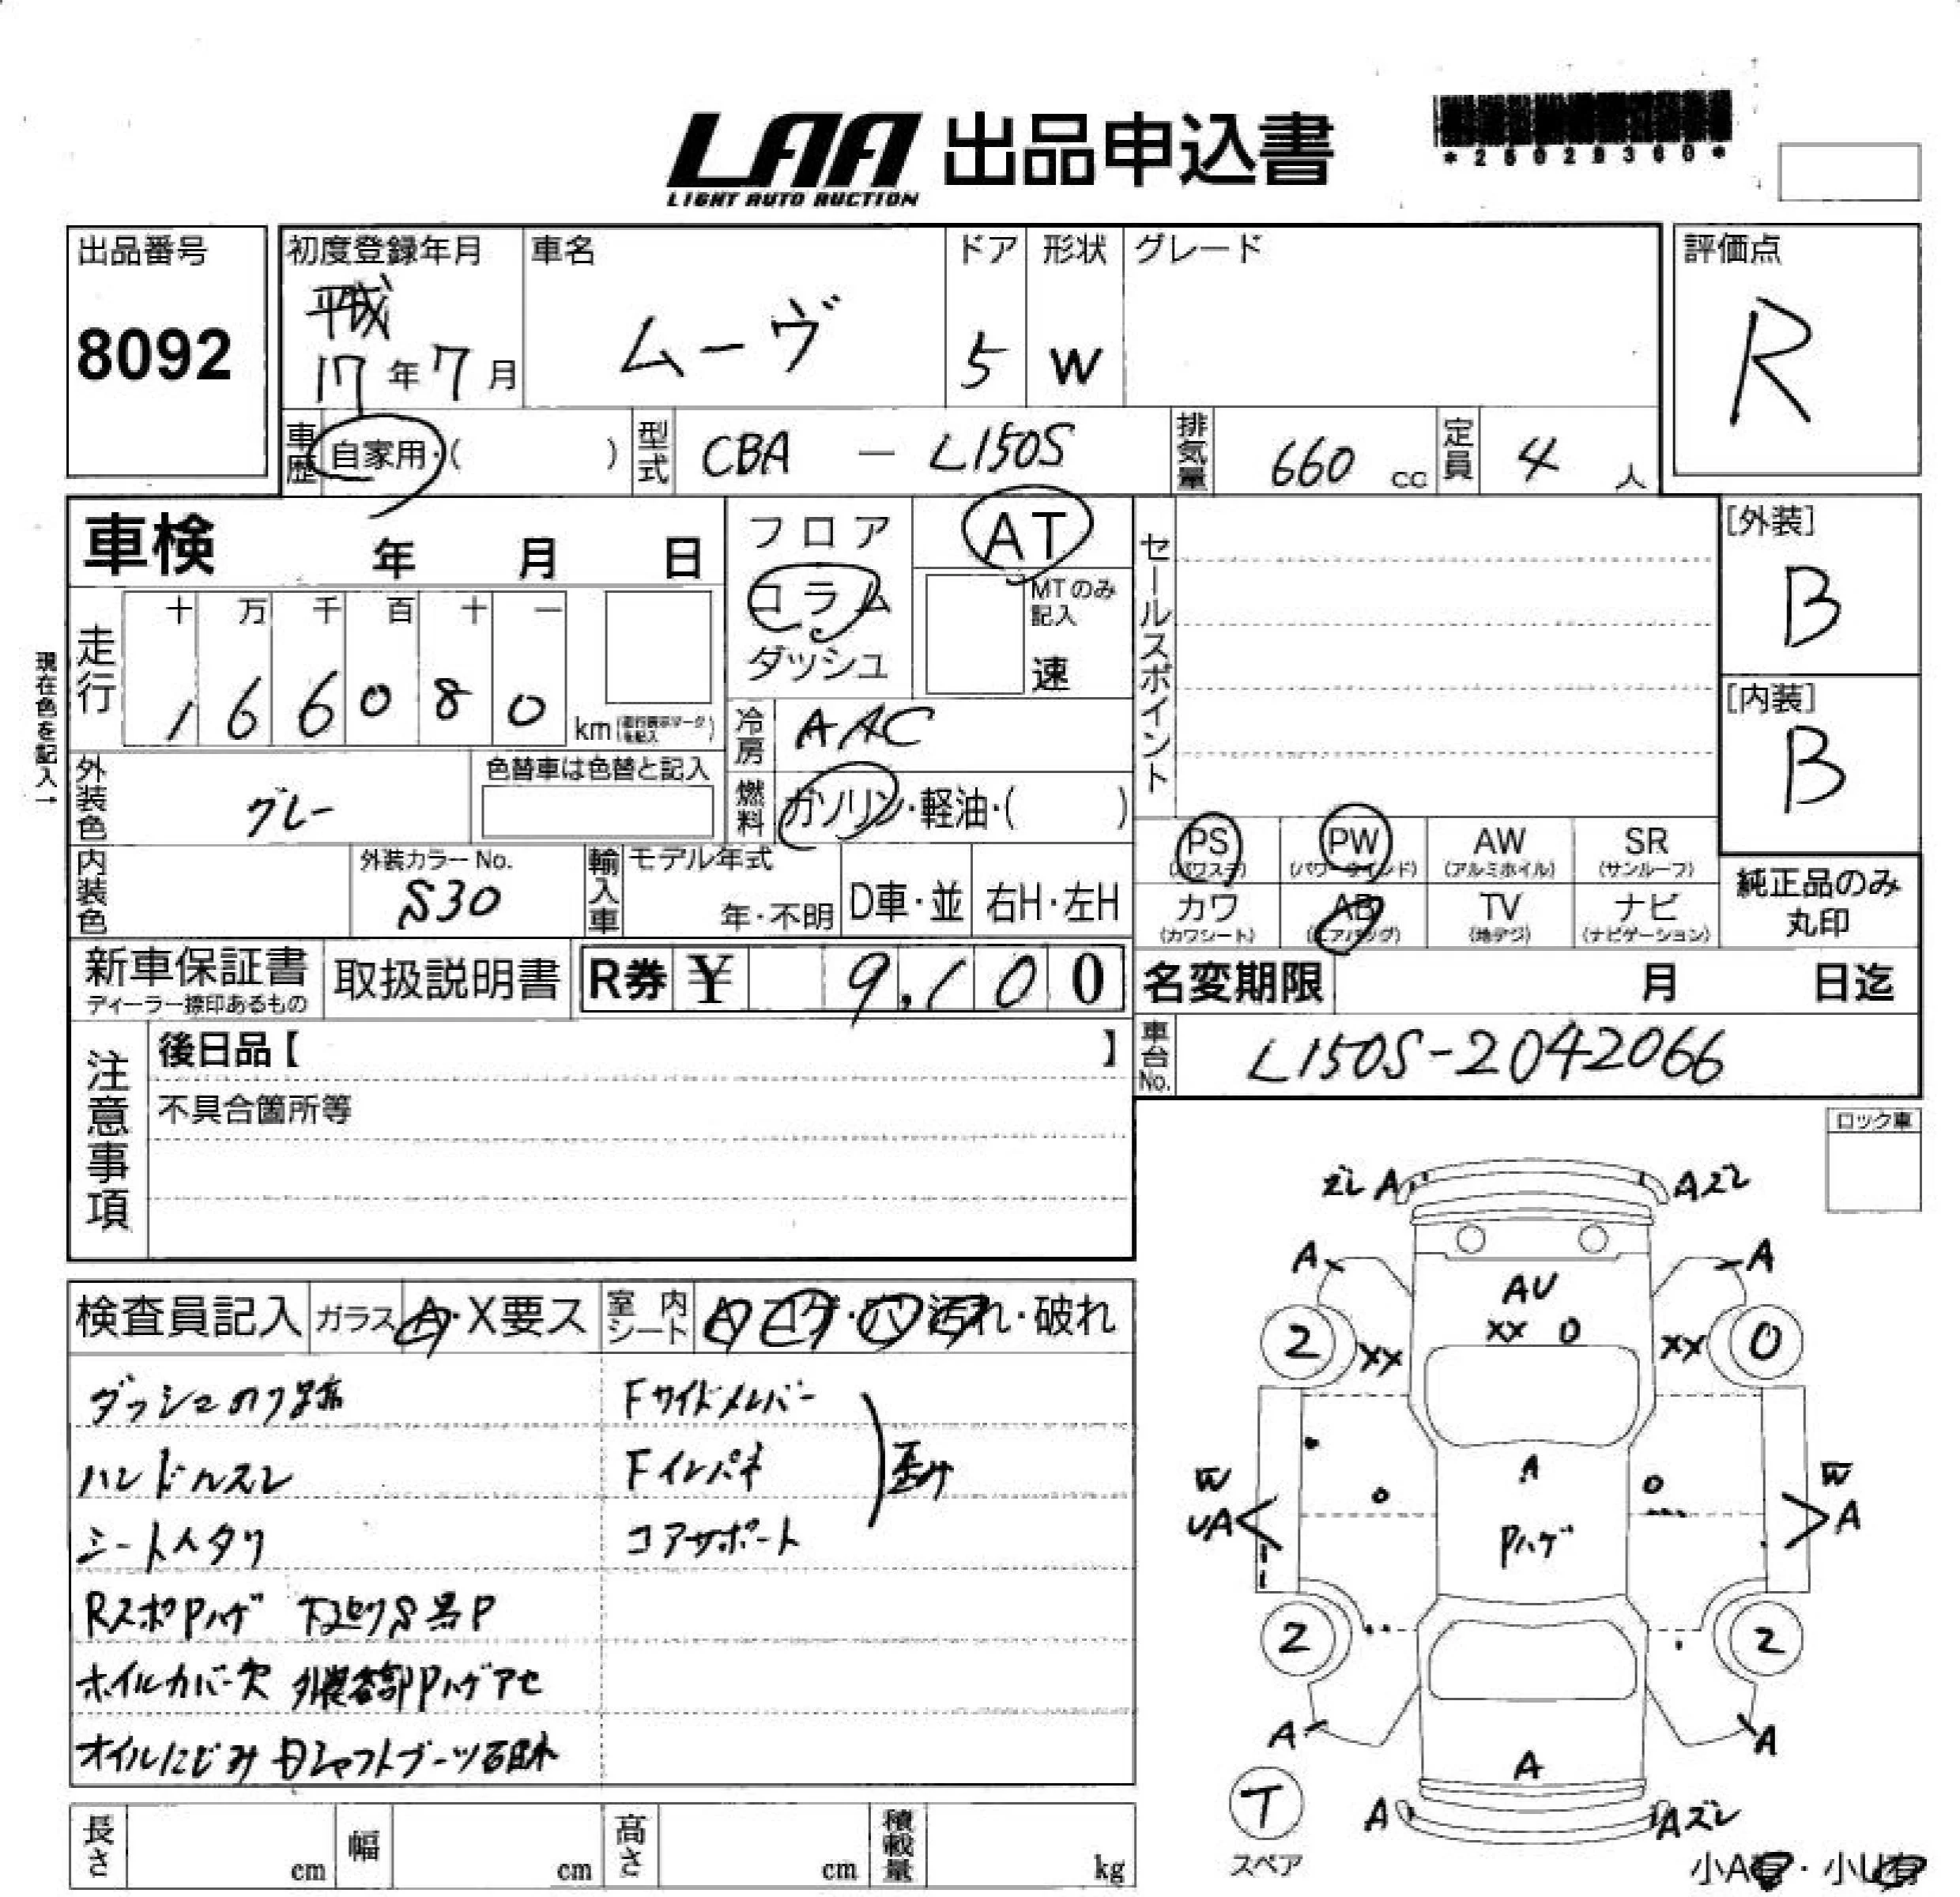 LAA 出品申込書
LIGHT AUTO AUCTION
*25029360*
出品番号
8092
初度登録年月
平成
17年7月
車名
ムーヴ
ドア
5
形状
W
グレード
評価点
R
車歴
自家用・( )
型式
CBA — L150S
排気量
660 cc
定員
4 人
車検 年 月 日
フロア
コラム
ダッシュ
AT
MTのみ
記入
速
セールスポイント
[外装]
B
[内装]
B
現在色を記入→
走行
十 万 千 百 十 一
1 6 6 0 8 0 km
冷房
AAC
外装色
グレー
色替車は色替と記入
燃料
ガソリン・軽油・( )
内装色
外装カラーNo.
S30
輸入車
モデル年式
年・不明
D車・並
右H・左H
PS
(パワステ)
PW
(パワーウインド)
AW
(アルミホイル)
SR
(サンルーフ)
カワ
(カワシート)
AB
(エアバッグ)
TV
(地デジ)
ナビ
(ナビゲーション)
純正品のみ
丸印
新車保証書
ディーラー捺印あるもの
取扱説明書
R券 ¥ 9,100
名変期限 月 日迄
車台No.
L150S-2042066
注意事項
後日品【 】
不具合箇所等
ロック車
検査員記入
ガラス
A・X要ス
室内シート
A・コゲ・穴・汚れ・破れ
ダッシュのり跡
ハンドルスレ
シートヘタリ
RスポPハゲ 下廻りS黒P
ホイルカバー欠 外装各部Pハゲアセ
オイルにじみ
Fサイドメンバー
Fインパネ
コアサポート
歪み
ズレ A
Aズレ
A
A
AU
XX O
2
XX
XX
0
W
UA
A
Pハゲ
W
A
2
2
A
A
A
T
スペア
A
Aズレ
小A有・小U有
長さ cm
幅 cm
高さ cm
積載量 kg